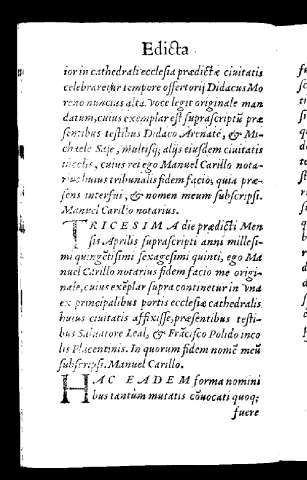 Edicta
ior in cathedrali ecclesia prædictæ ciuitatis
celebraretur tempore offertorij Didacus Mo
reno nuncias alta voce legit originale man
datum, cuius exemplar est suprascriptũ præ
sentibus testibus Didaco Arenate, & Mi-
chaele Saſe, multisq; alijs eiusdem ciuitatis
incolis, cuius rei ego Manuel Carillo nota-
rius huius tribunalis fidem facio, quia præ-
sens interfui, & nomen meum subscripsi.
Manuel Carillo notarius.
TRICESIMA die prædicti Men
sis Aprilis suprascripti anni millesi-
mi quingẽtisimi sexagesimi quinti, ego Ma
nuel Carillo notarius fidem facio me origi-
nale, cuius exẽplar supra continetur in vna
ex principalibus portis ecclesiæ cathedralis
huius ciuitatis affixisse, præsentibus testi-
bus Saluatore Leal, & Frãcisco Polido inco
lis Placentinis. In quorum fidem nomẽ meũ
subscripsi. Manuel Carillo.
HAC EADEM forma nomini
bus tantùm mutatis cõuocati quoq;
fuere